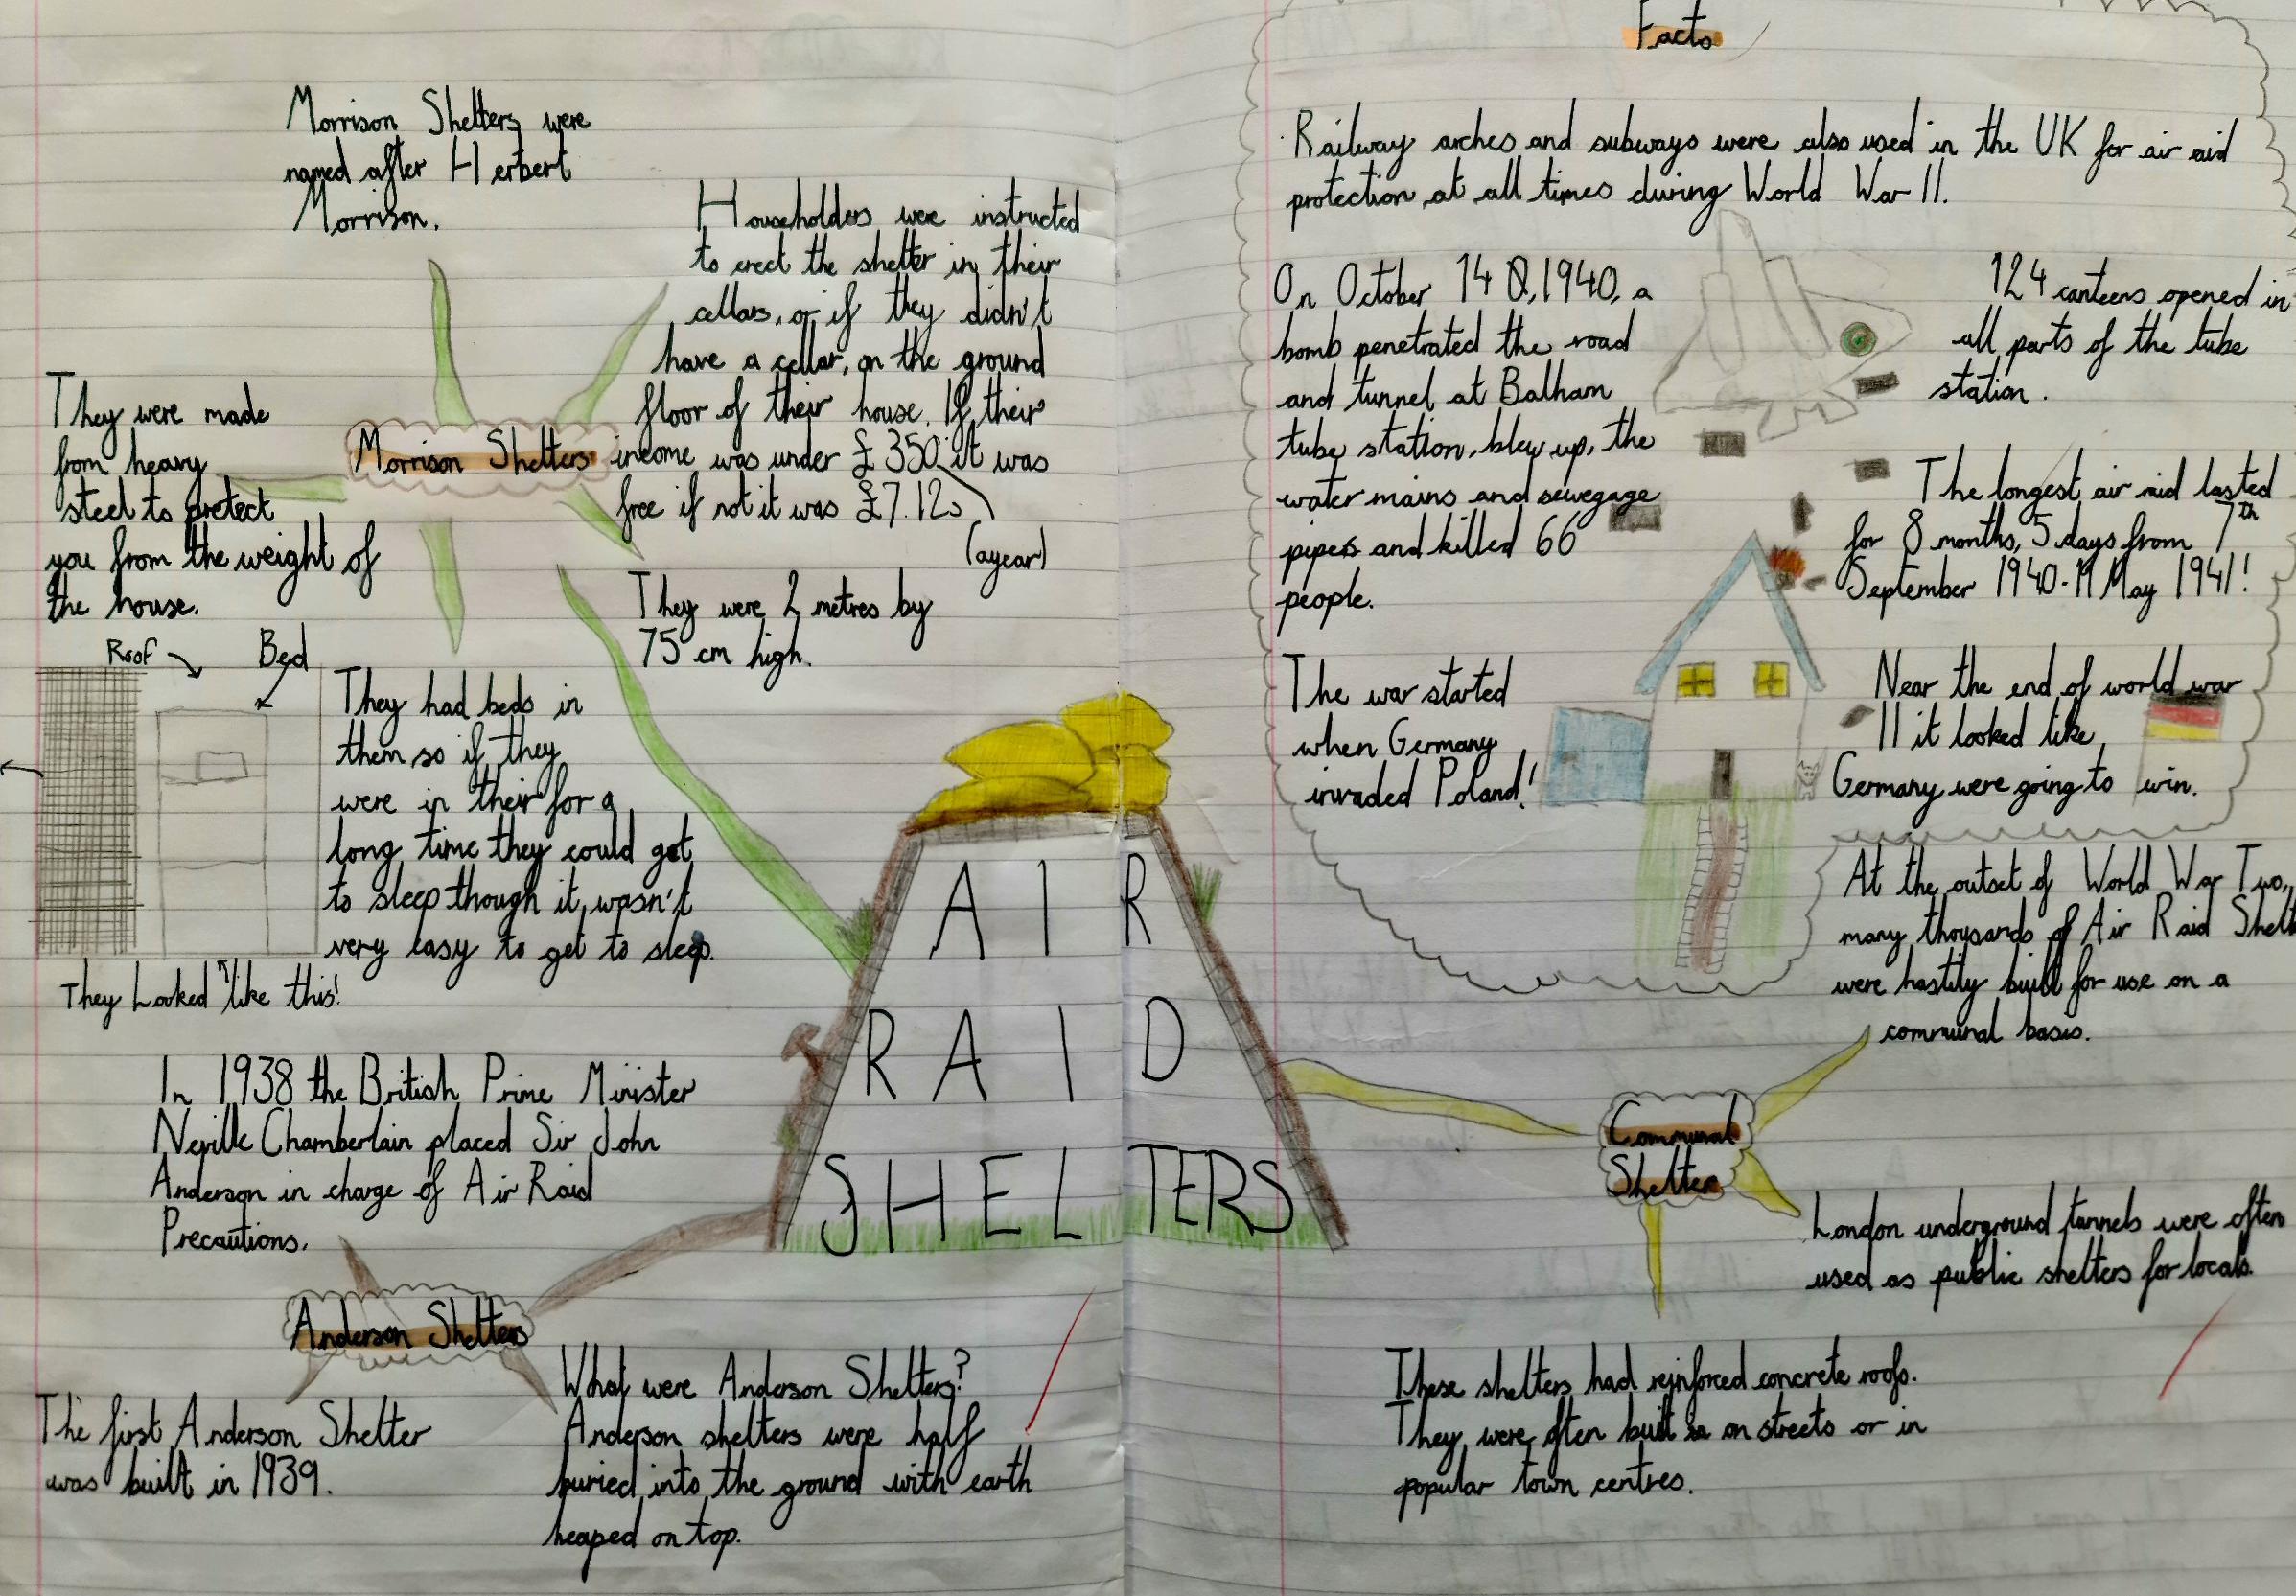 Morrison Shelters were
named after Herbert
Morrison.
Householders were instructed
to erect the shelter in their
cellars, or if they didn't
have a cellar, on the ground
floor of their house. If their
income was under £350 it was
free if not it was £7.12s
(a year)
They were made
from heavy
steel to protect
you from the weight of
the house.
Morrison Shelters
They were 2 metres by
75 cm high.
Roof
Bed
They had beds in
them so if they
were in their for a
long time they could get
to sleep though it wasn't
very easy to get to sleep.
They Looked like this!
AIR
RAID
SHELTERS
In 1938 the British Prime Minister
Neville Chamberlain placed Sir John
Anderson in charge of Air Raid
Precautions.
Anderson Shelters
The first Anderson Shelter
was built in 1939.
What were Anderson Shelters?
Anderson shelters were half
buried into the ground with earth
heaped on top.
Facts
Railway arches and subways were also used in the UK for air aid
protection at all times during World War II.
On October 14 1940, a
bomb penetrated the road
and tunnel at Balham
tube station, blew up, the
water mains and sewegage
pipes and killed 66
people.
124 canteens opened in
all parts of the tube
station.
The longest air raid lasted
for 8 months, 5 days from 7th
September 1940-11 May 1941!
The war started
when Germany
invaded Poland!
Near the end of world war
II it looked like
Germany were going to win.
At the outset of World War Two,
many thousands of Air Raid Shelt
were hastily built for use on a
communal basis.
Communal
Shelter
London underground tunnels were often
used as public shelters for locals.
These shelters had reinforced concrete roofs.
They were often built on streets or in
popular town centres.